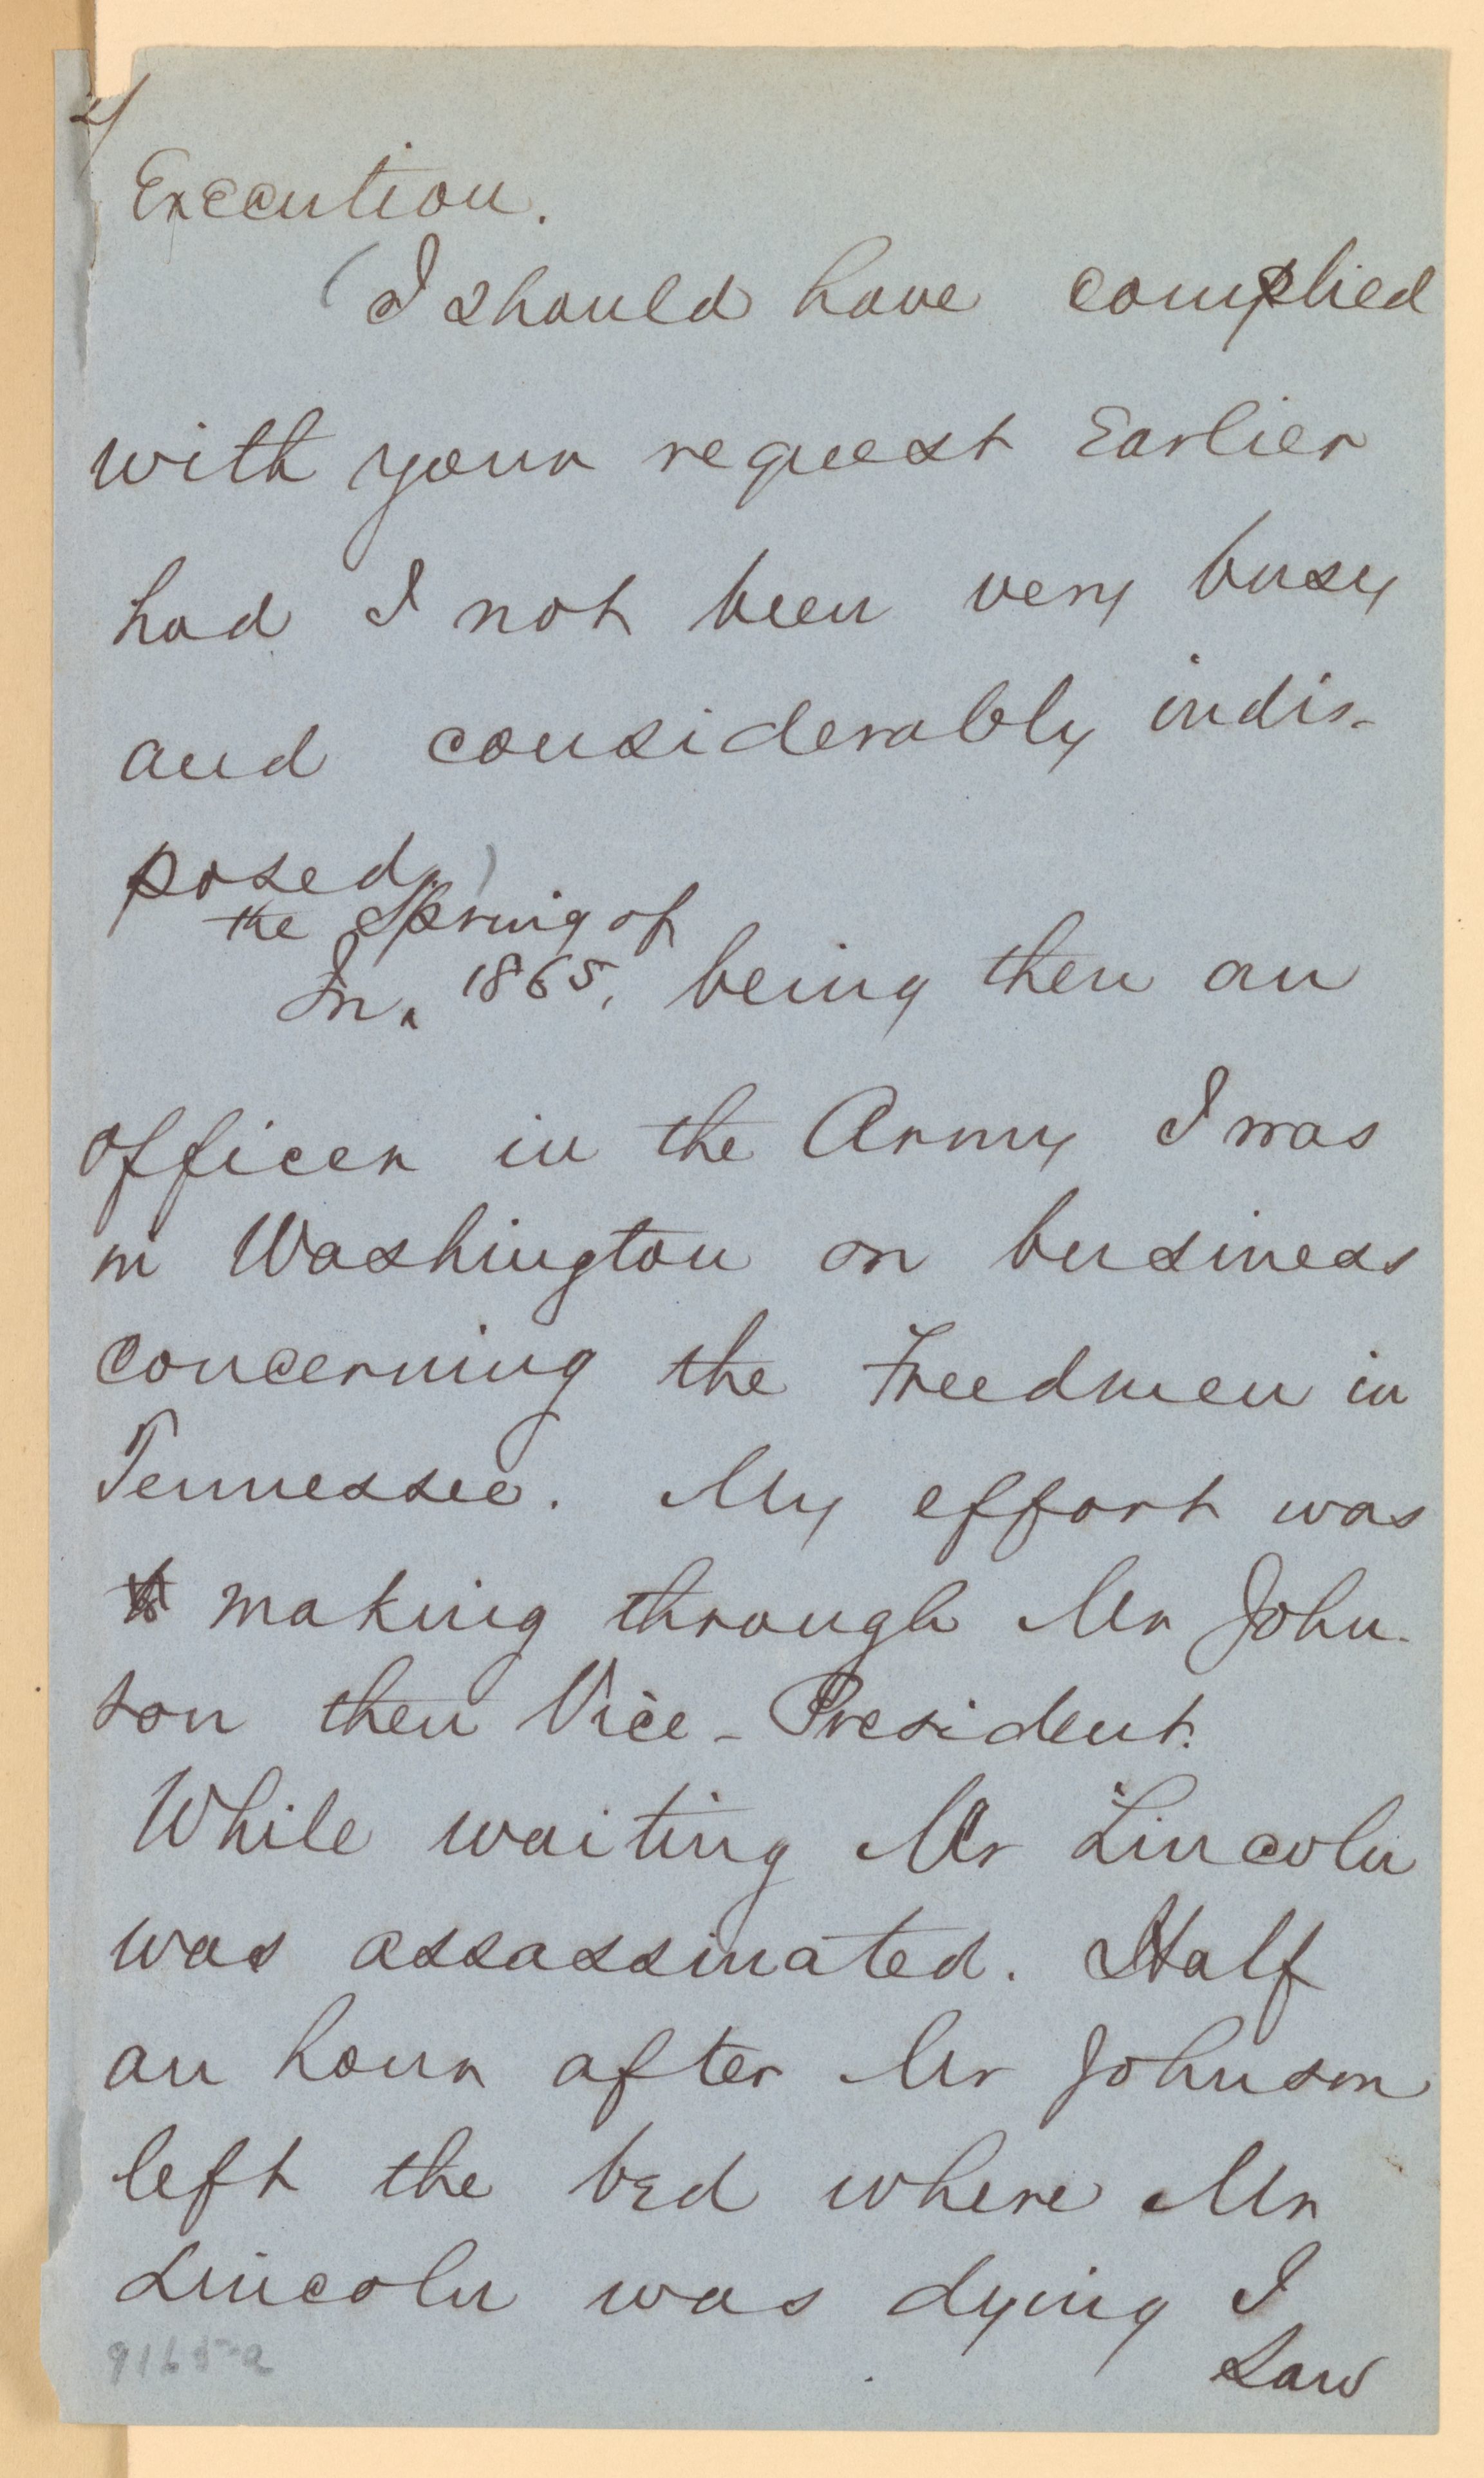 2/
Execution.
(I should have complied
with your request Earlier
had I not been very busy
and considerably indis-
posed.)
the Spring of
In ‸ 1865, being then an
officer in the Army I was
in Washington on business
concerning the Freedmen in
Tennessee. My effort was
making through Mr John-
son then Vice-President.
While waiting Mr Lincoln
was assassinated. Half
an hour after Mr Johnson
left the bed where Mr
Lincoln was dying I
saw
9165-a